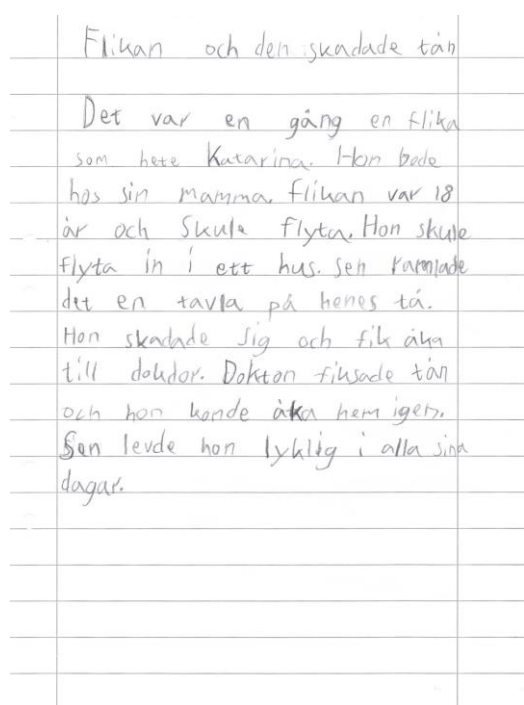 Flikan och den skadade tån
Det var en gång en flika
som hete Katarina. Hon bode
hos sin mamma. flikan var 18
år och Skule flyta. Hon skule
flyta in i ett hus. Sen ramlade
det en tavla på henes tå.
Hon skadade sig och fik åka
till dokdor. Dokton fiksade tån
och hon konde åka hem igen.
Sen levde hon lyklig i alla sina
dagar.